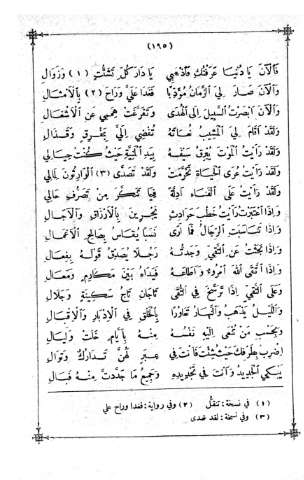 (١٩٥)
فالآن يا دنيا عرفتك فاذهبي يا دار كل تشتت (١) وزوال
والآن صار لي الزمان مؤدبا فغدا علي وراح (٢) بالأمثال
والآن أبصرت السبيل إلى الهدى وتفرغت هممي عن الأشغال
ولقد أقام لي المشيب نعاته تفضي إلي بمفرق وقذال
ولقد رأيت الموت يبرق سيفه بيد المنية حيث كنت حيالي
ولقد رأيت عرى الحياة تخرمت ولقد تصدى (٣) الوارثون لمالي
ولقد رأيت على الفناء أدلة فيما تنكر من تصرف حالي
وإذا اعتبرت رأيت خطب حوادث يجرين بالأرزاق والآجال
وإذا تناسبت الرجال فما أرى نسبا يقاس بصالح الأعمال
وإذا بحثت عن التقي وجدته رجلا يصدق قوله بفعال
وإذا اتقى الله امرؤ وأطاعه فيداه بين مكارم ومعال
وعلى التقي إذا ترسخ في التقى تاجان تاج سكينة وجلال
والليل يذهب والنهار تعاورا بالخلق في الإدبار والإقبال
وبحسب من تنعى إليه نفسه منه بأيام خلت وليال
اضرب بطرفك حيث شئت فأنت في عبر لهن تدارك وتوال
يبكي الجديد وأنت في تجديده وجميع ما جددت منه فبال
(١) في نسخة: تنقل (٢) وفي رواية: فغدا وراح علي
(٣) وفي نسخة: لقد غدى